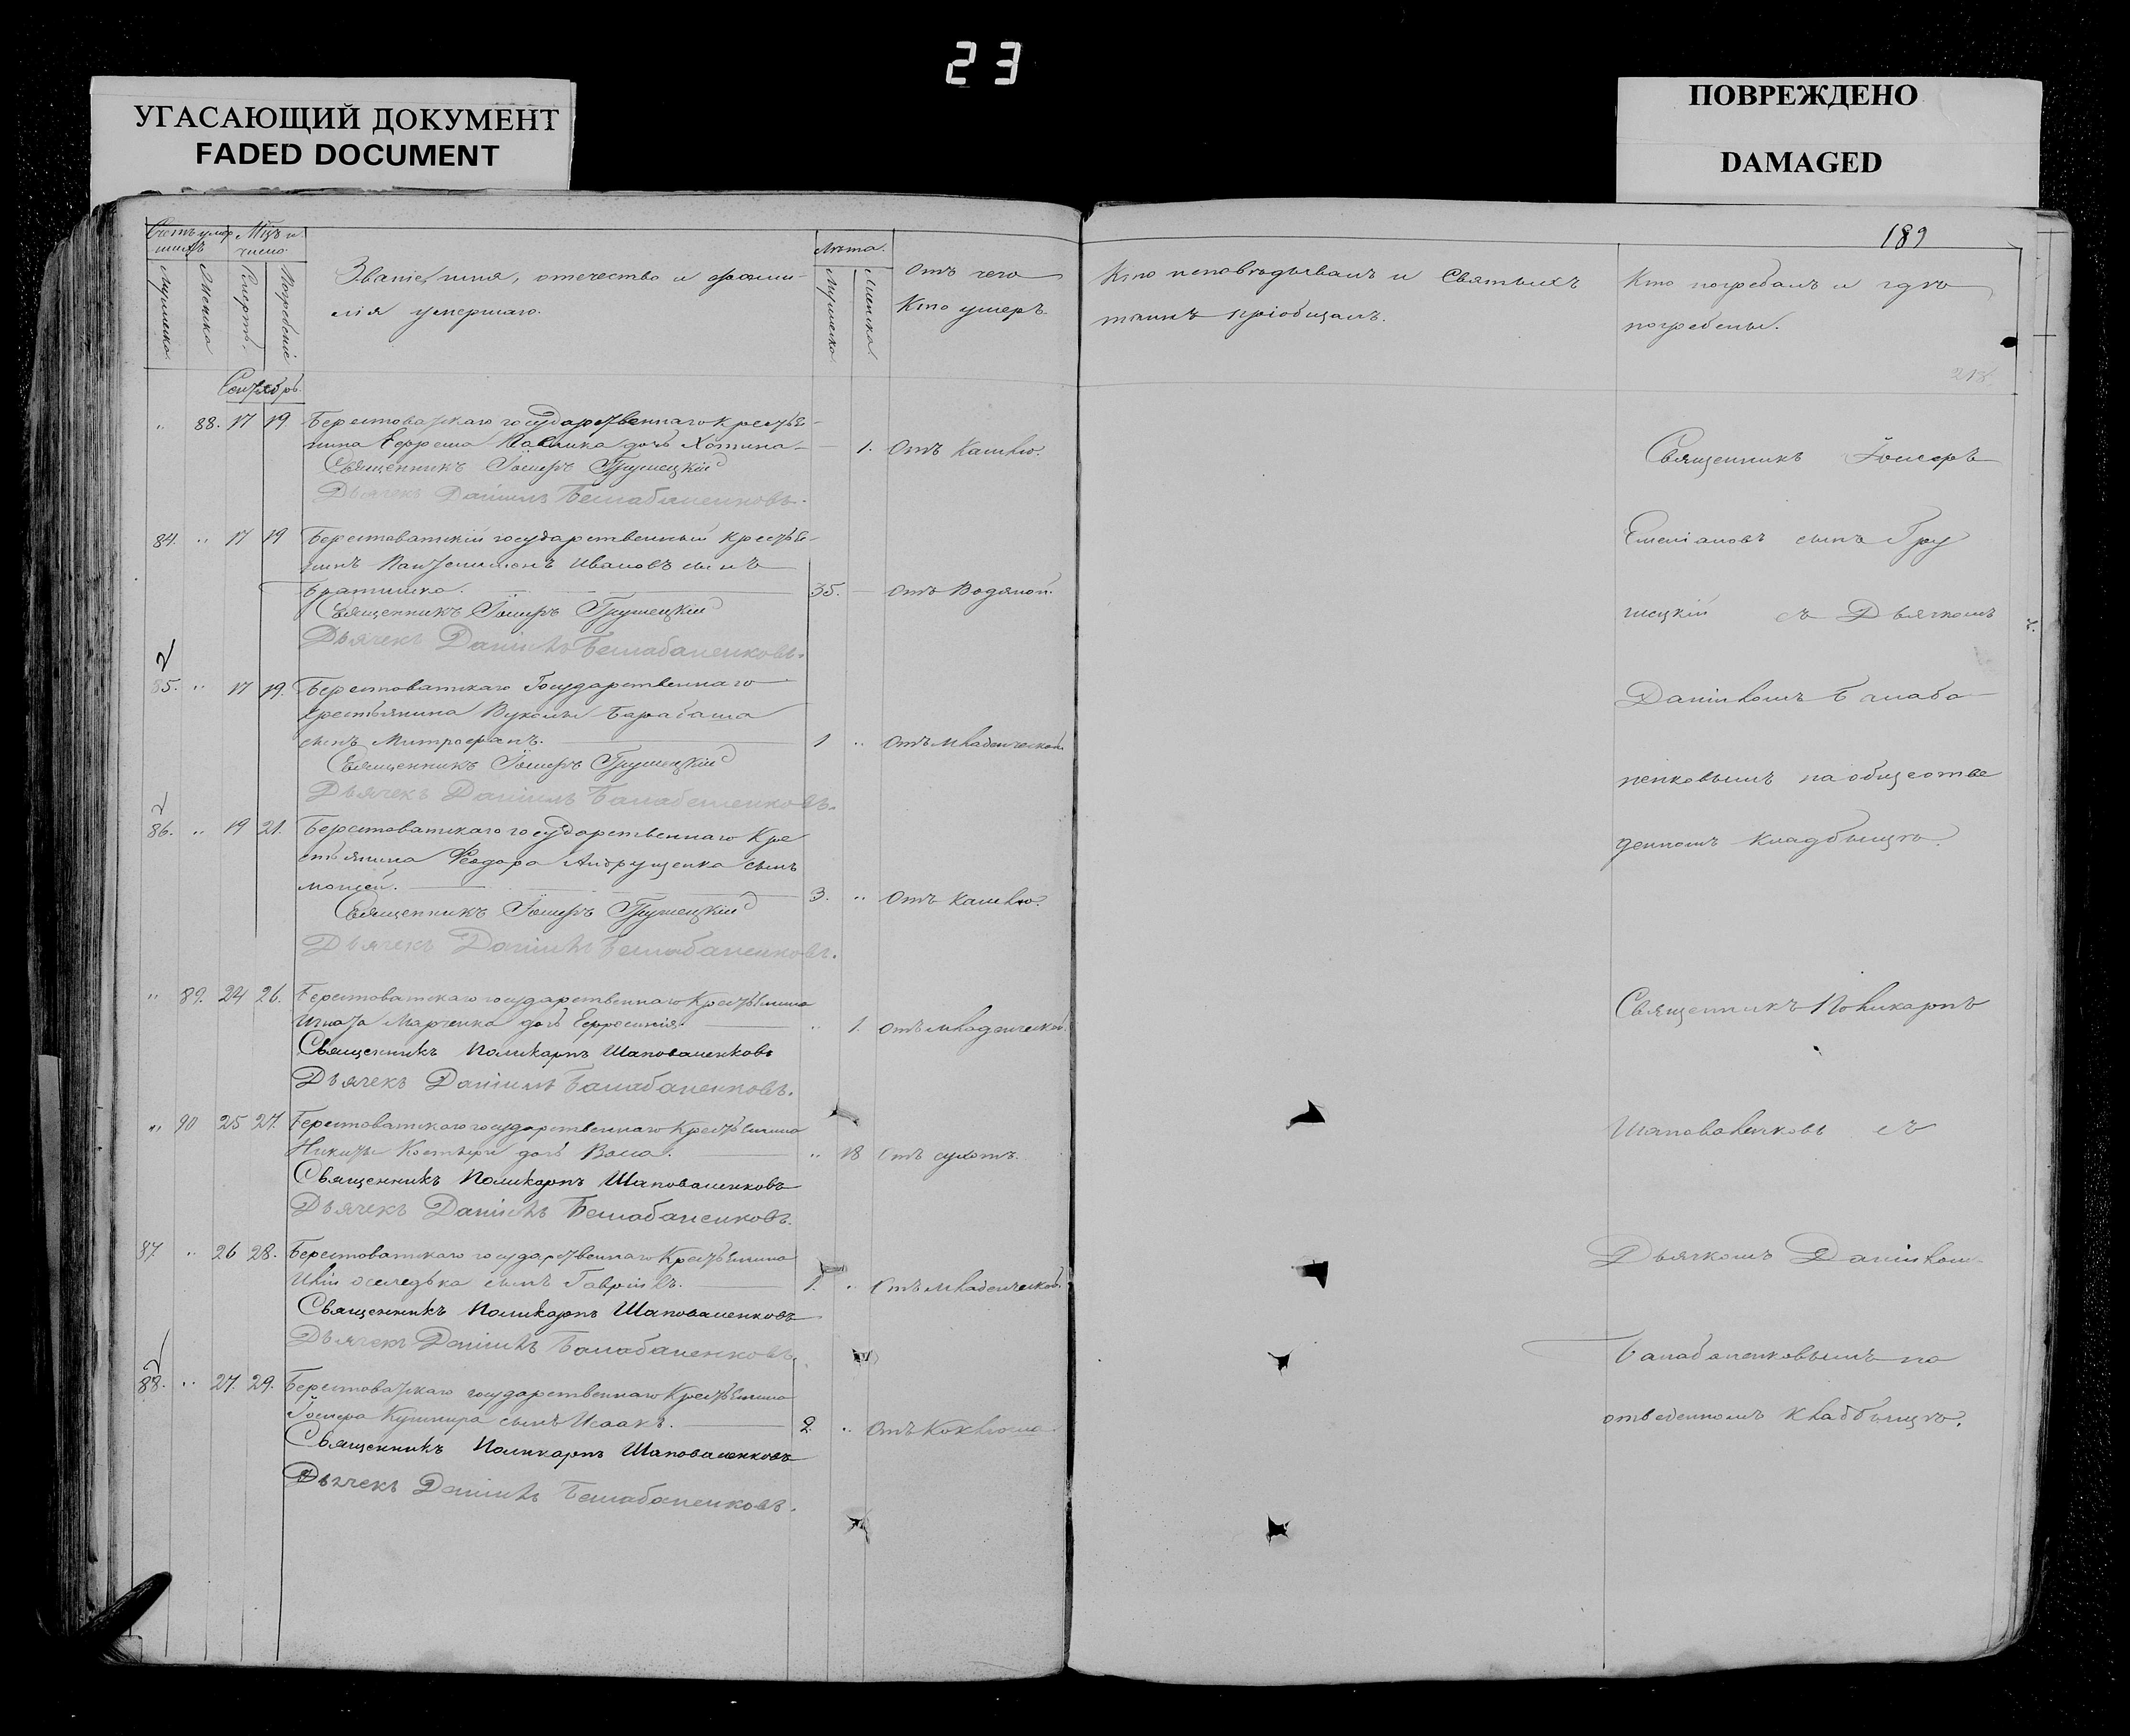 23
УГАСАЮЩИЙ ДОКУМЕНТ
FADED DOCUMENT
ПОВРЕЖДЕНО
DAMAGED
189
Счетъ умер
шихъ
Мцъ и
число.
Мужеска.
Женска
Смерть.
Погребеніе
Званіе, имя, отечество и фами-
лія умершаго.
Лѣта.
Мужеска
Женска.
Отъ чего
Кто умеръ.
Кто исповѣдывалъ и Святыхъ
таинъ пріобщалъ.
Кто погребалъ и гдѣ
погребены.
Сентябрь.
88. 17 19 Берестоватскаго государственнаго крестья-
нина дочь
1. Отъ Кашлю.
Священникъ Іосифъ Грушецкій
Дьячекъ Даніилъ Балабаненковъ.
84. 17 19 Берестоватскій государственный крестья-
нинъ Пантелимонъ Ивановъ сынъ
35. Отъ Водяной.
Священникъ Іосифъ Грушецкій
Дьячекъ Даніилъ Балабаненковъ.
85. 17 19. Берестоватскаго Государственнаго
крестьянина Вукола Барабаша
сынъ Митрофанъ.
1 Отъ младенческой
Священникъ Іосифъ Грушецкій
Дьячекъ Даніилъ Балабаненковъ.
86. 19 21. Берестоватскаго государственнаго Кре
стьянина Феодора Андрущенка сынъ
Моисей.
3. Отъ Кашлю.
Священникъ Іосифъ Грушецкій
Дьячекъ Даніилъ Балабаненковъ.
89. 24 26. Берестоватскаго государственнаго Крестьянина
Игната Марченка дочь Ефросинія.
1. Отъ младенческой.
Священникъ Поликарпъ Шаповаленковъ
Дьячекъ Даніилъ Балабаненковъ.
90 25 27. Берестоватскаго государственнаго Крестьянина
Никиты дочь
18 Отъ сухотъ.
Священникъ Поликарпъ Шаповаленковъ
Дьячекъ Даніилъ Балабаненковъ.
87 26 28. Берестоватскаго государственнаго Крестьянина
Иліи Оселедька сынъ Гавріилъ.
1. Отъ младенческой.
Священникъ Поликарпъ Шаповаленковъ
Дьячекъ Даніилъ Балабаненковъ.
88. 27. 29. Берестоватскаго государственнаго Крестьянина
Іосифа Кушнира сынъ Исаакъ.
2. Отъ Коклюша.
Священникъ Поликарпъ Шаповаленковъ
Дьячекъ Даніилъ Балабаненковъ.
Священникъ Іосифъ
Емеліановъ сынъ Гру
шецкій съ Дьячкомъ
Даніиломъ Балаба-
ненковымъ на общеотве
денномъ кладбыщѣ.
Священникъ Поликарпъ
Шаповаленковъ съ
Дьячкомъ Даніилом-
Балабаненковымъ на
отведенномъ кладбыщѣ.